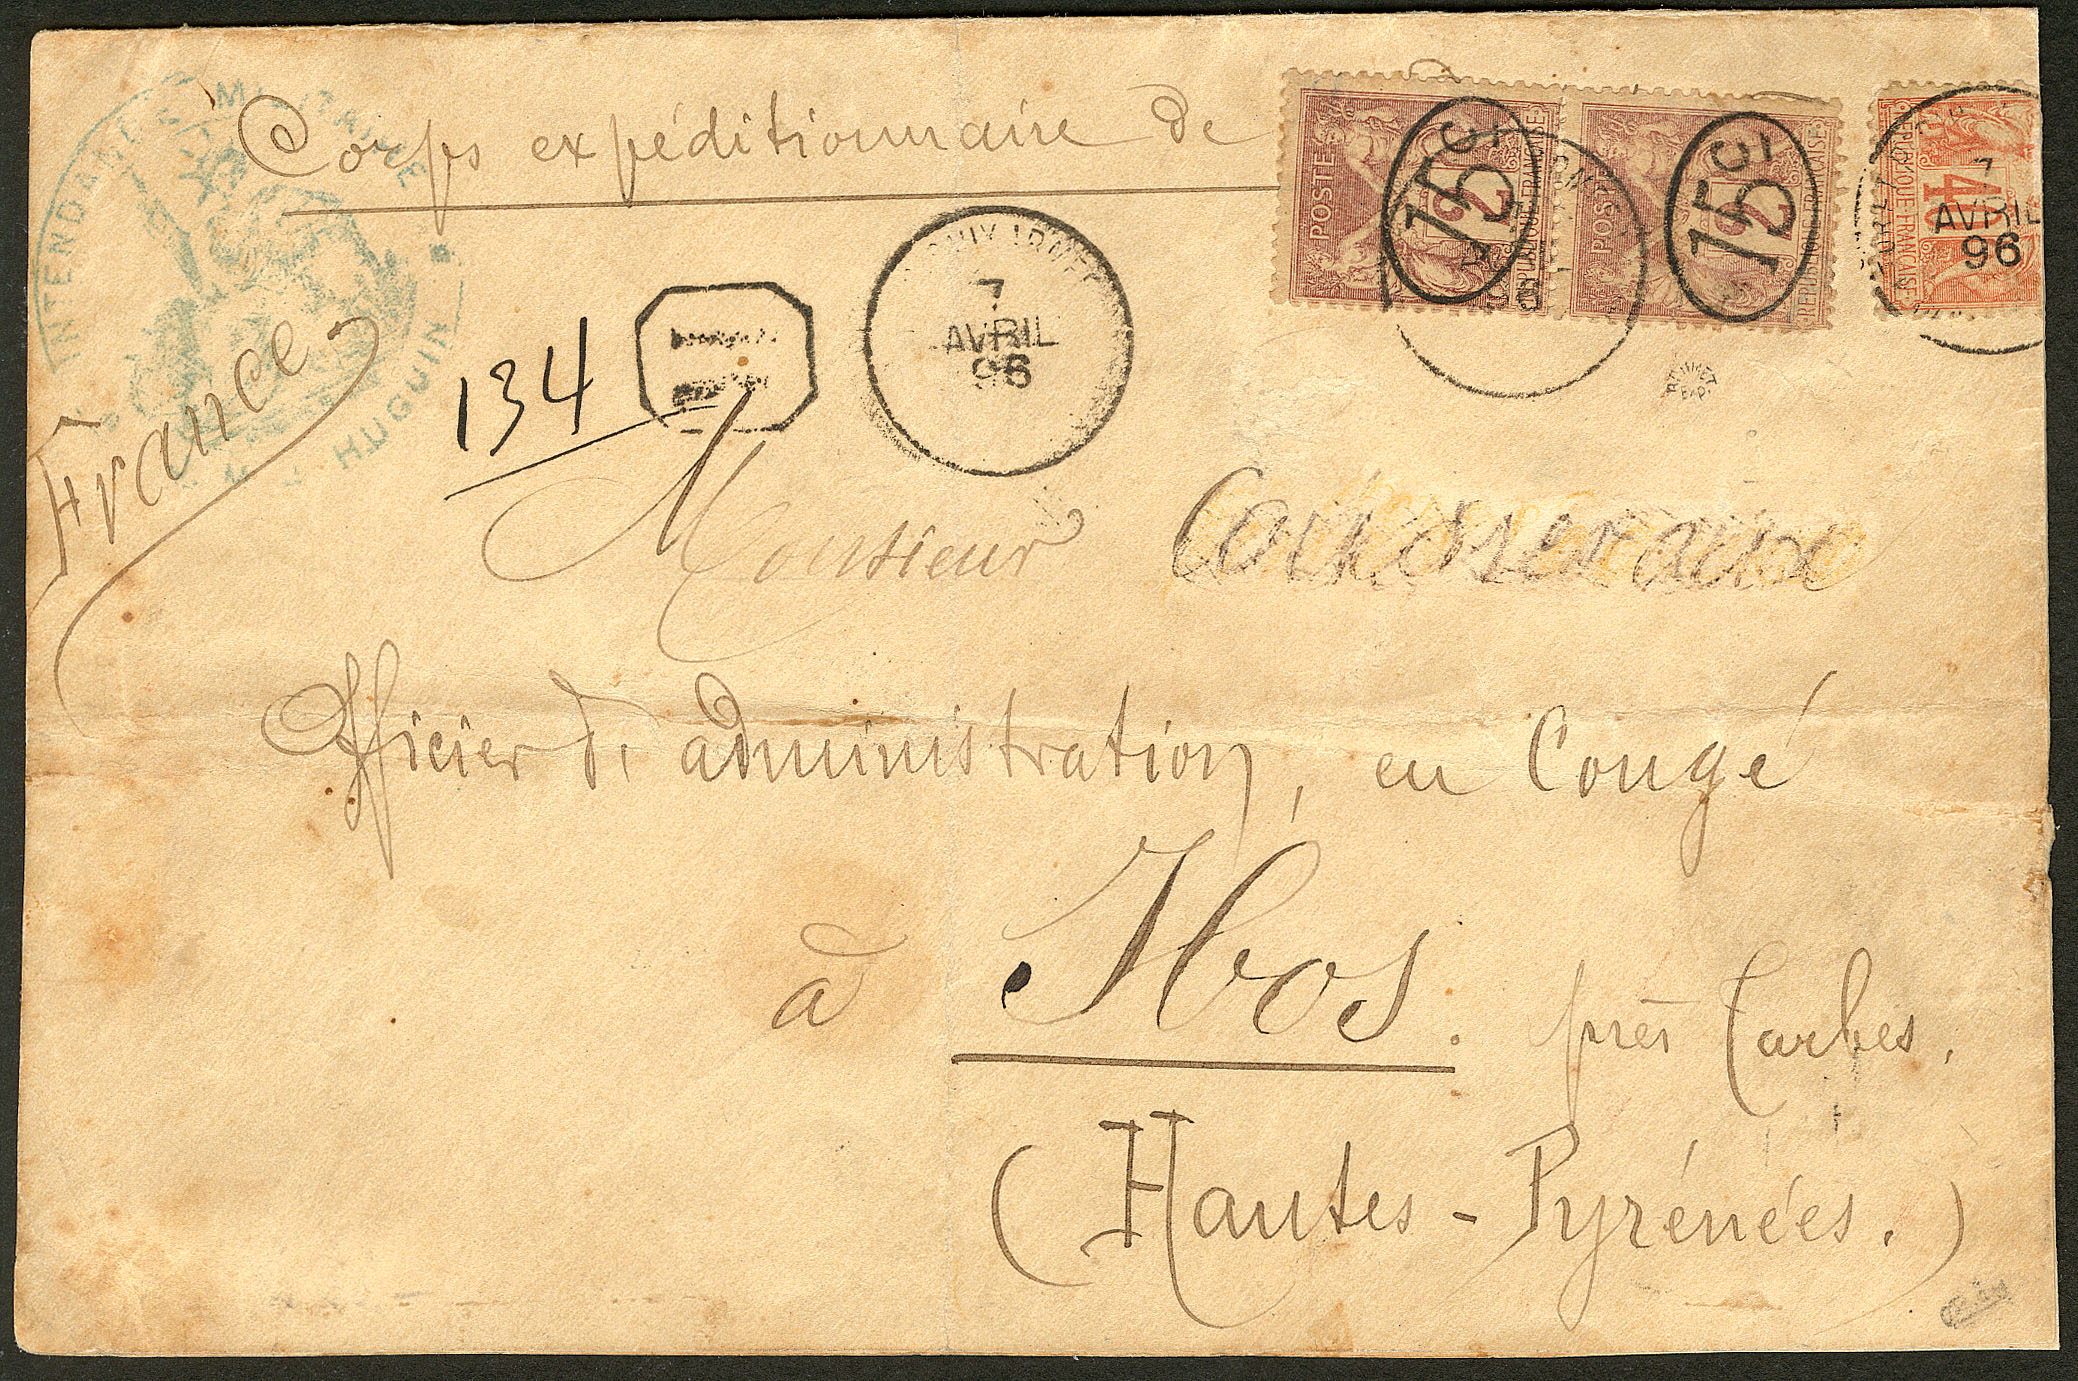 Corps expéditionnaire de
INTENDANCE MILITAIRE
HUGUIN
France
134
7
AVRIL
96
POSTE
15c
2
REPUBLIQUE FRANCAISE
POSTE
15c
2
REPUBLIQUE FRANCAISE
40
REPUBLIQUE FRANCAISE
7
AVRIL
96
Monsieur
Officier d'administration, en Congé
à Ibos. près Tarbes.
(Hautes-Pyrénées.)